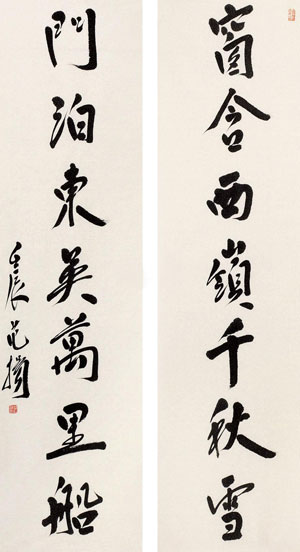 窗含西嶺千秋雪
門泊東吳萬里船
壬辰范